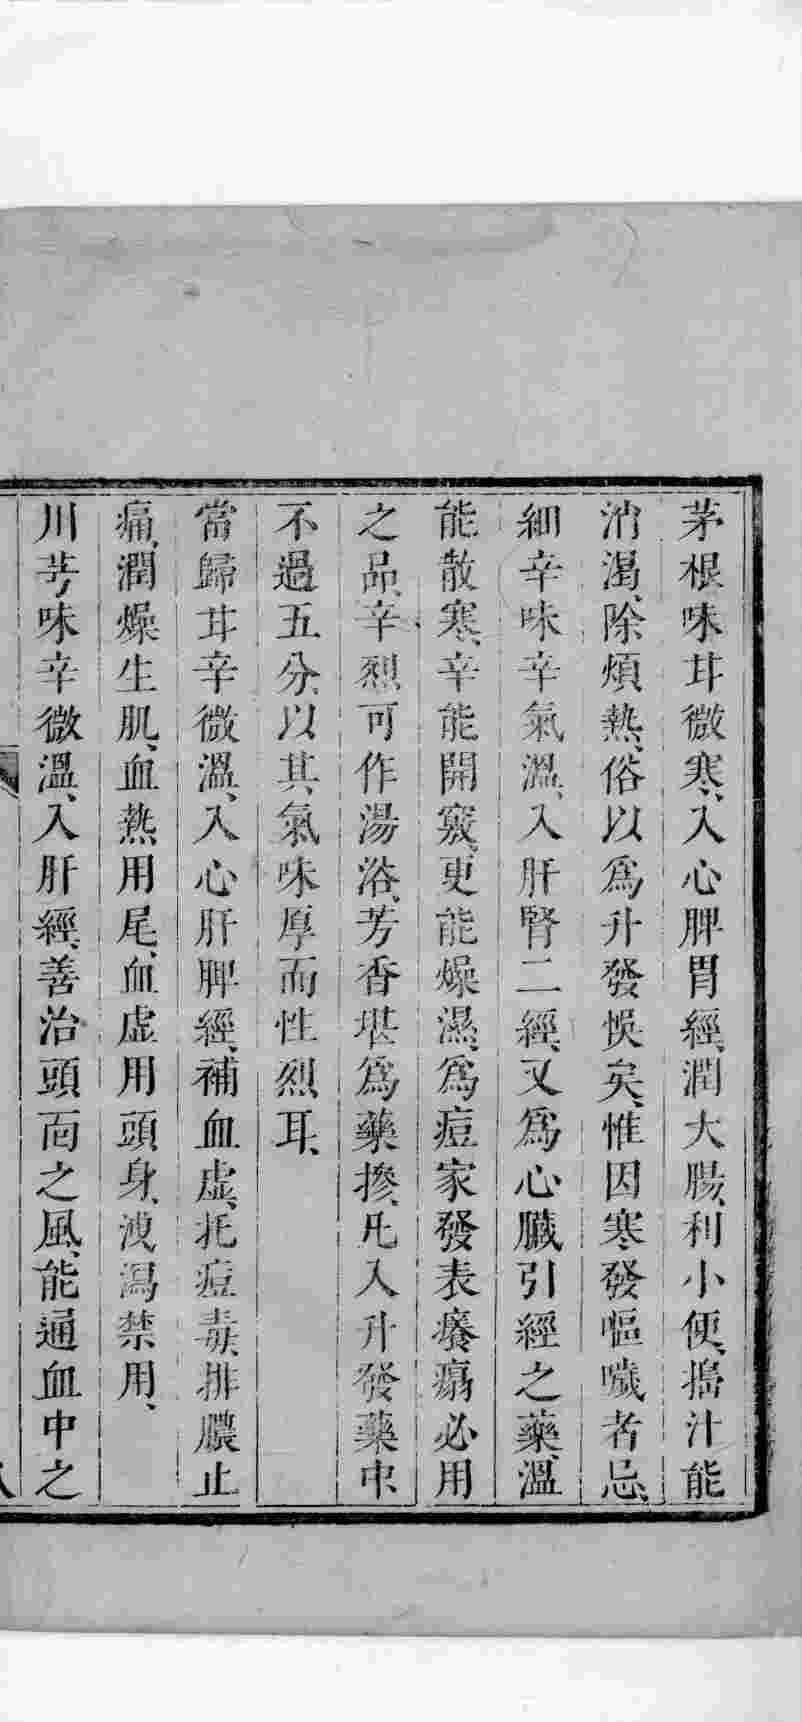 茅根味甘微寒、入心脾胃經、潤大腸、利小便、搗汁能
消渴、除煩熱、俗以爲升發悞矣、惟因寒發嘔噦者忌、
細辛味辛氣溫、入肝腎二經、又爲心臟引經之藥、溫
能散寒、辛能開竅、更能燥濕、爲痘家發表癢瘍必用
之品、辛烈可作湯浴、芳香堪爲藥摻、凡入升發藥中、
不過五分、以其氣味厚而性烈耳、
當歸甘辛微溫、入心肝脾經、補血虛、托痘毒、排膿止
痛、潤燥生肌、血熱用尾、血虛用頭身、洩瀉禁用、
川芎味辛微溫、入肝經、善治頭面之風、能通血中之
八